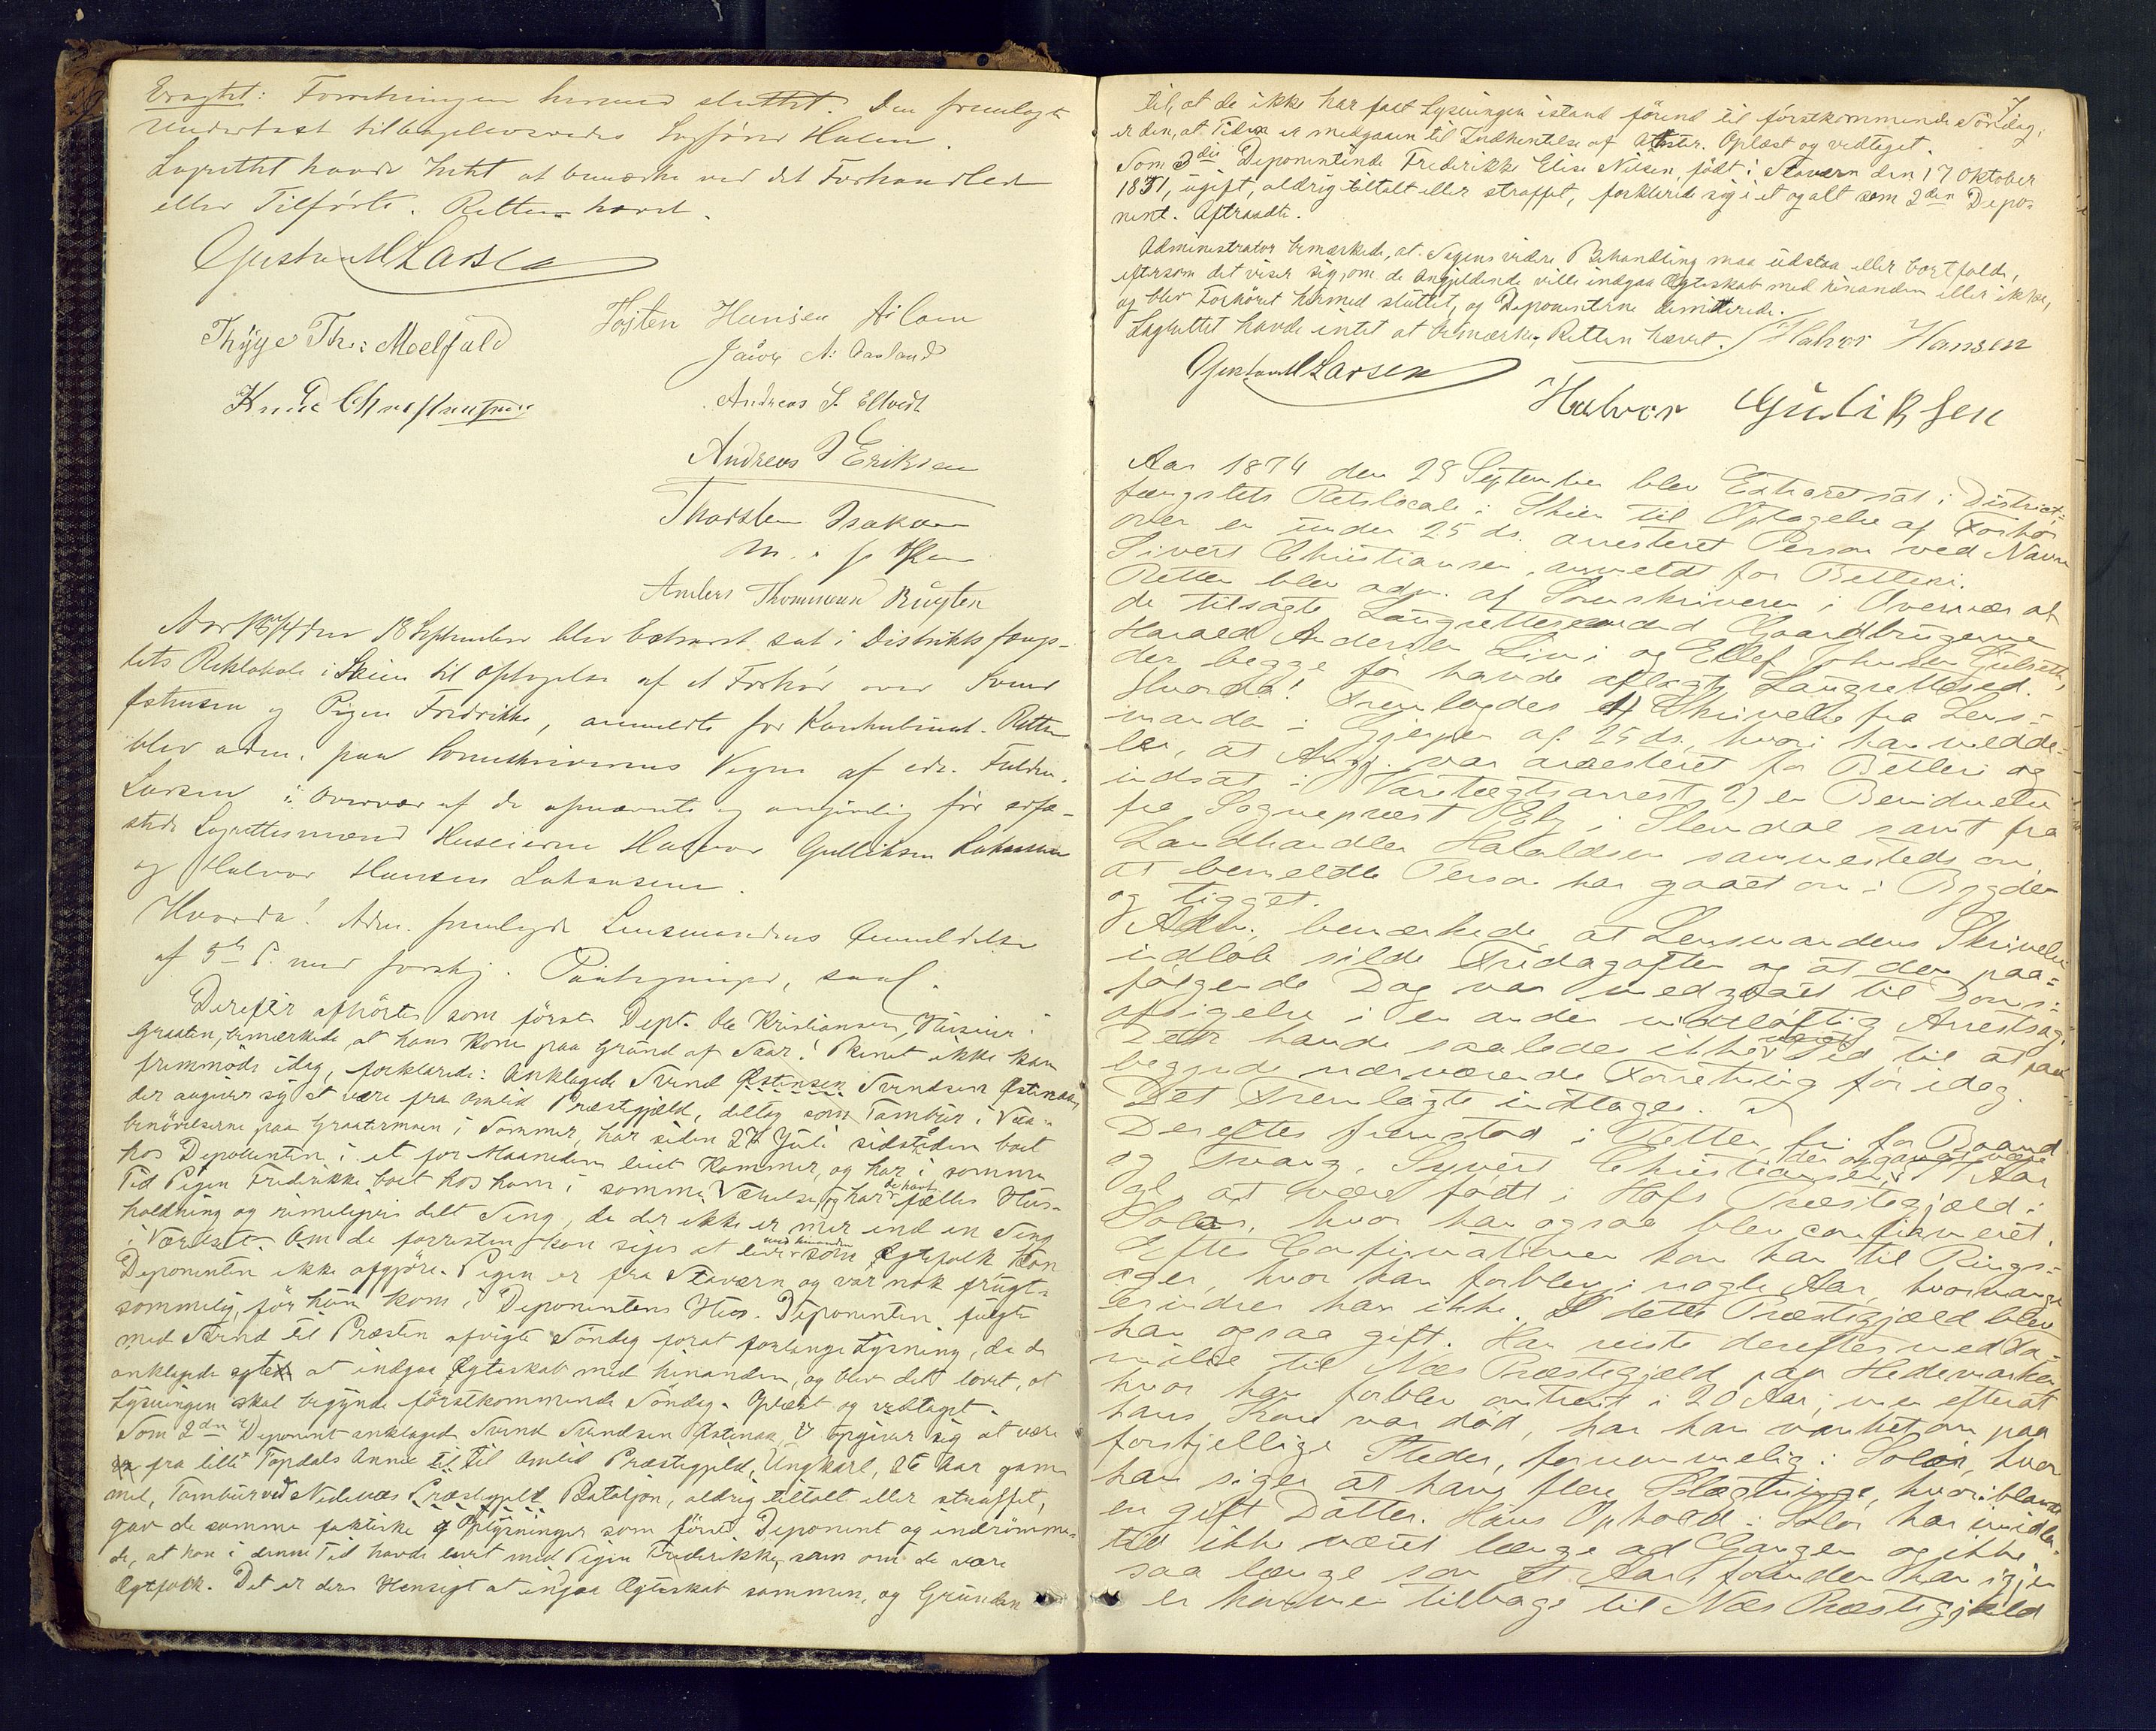 Eragtet: Forretningen hermed sluttet. Den fremlagte
tilbageleveredes Sagfører Holm.
Lagrettet havde Intet at bemærke ved det Forhandlede
eller Tilførte. Retten hævet.
Gustav M Larsen
Hansen
Thyge Th: Melfald
Jacob A: Aasland
Knud Christensen
Andreas S. Eltvedt
Andreas J Eriksen
Thorsten Isaksen
m. i. p. Pen
Anders Thommesen Rugten
Aar 1874 den 18 September blev Extraret sat i Distriktsfængs-
lets Retslokale i Skien til Optagelse af et Forhør over Svend
Østensen og Pigen Fredrikke, anmeldte for Konkubinat. Retten
blev adm. paa Sorenskriverens Vegne af edv. Fuldm.
Larsen i Overvær af de opnævnte og angivelig før edfæ-
stede Lagrettesmænd Huseierne Halvor Gulliksen
og Halvor Hansen
Hvorda! Adm. fremlagde Lensmandens Anmeldelse
af 5te d. med forskj. Paategninger, saal.
Derefter afhørtes som første Dept. Ole Kristiansen, Huseier i
Graaten, bemærkede, at hans Kone paa Grund af Saar i Benet ikke kan
fremmøde idag, forklarede: Anklagede Svend Østensen Svendsen Østenaa,
der angiver sig at være fra Omlid Præstegjæld, deltog som Tambur i Vaa-
benøvelserne paa Graatenmoen i Sommer, har siden 27 Juli sidstleden boet
hos Deponenten i et for Maaneden leiet Kammer, og har i samme
Tid Pigen Fredrikke boet hos ham i samme Værelse, og har de havt fælles Hus-
holdning og rimeligvis delt Seng, da der ikke er mer end en Seng
i Værelset. Om de forresten kan siges at leve med hinanden som Egtefolk kan
Deponenten ikke afgjøre. Pigen er fra Stavern og var nok frugt-
sommelig, før hun kom i Deponentens Hus. Deponenten fulgte
med Svend til Præsten afvigte Søndag forat forlange Lysning, da de
anklagede agted at indgaa Egteskab med hinanden, og blev det lovet, at
Lysningen skal begynde førstkommende Søndag. Oplæst og vedtaget.
Som 2den Deponent anklagede Svend Svendsen Østenaa, opgiver sig at være
fra lille Topdals Annex til Omlid Præstegjæld, Ungkarl, 26 Aar gam-
mel, Tambur ved Nedenæs Præstegjeld Bataljon, aldrig tiltalt eller straffet,
gav de samme faktiske Oplysninger som første Deponent og indrømme-
de, at han i denne Tid havde levet med Pigen Fredrikke, som om de være
Egtefolk. Det er ders Hensigt at indgaa Egteskab sammen, og Grunden
7
til, at de ikke har faaet Lysningen istand førend til førstkommende Søndag,
er den, at Tiden er medgaaen til Indhentelse af Attester. Oplæst og vedtaget.
Som 3die Deponentinde Frederikke Elise Nilsen, født i Stavern den 17 Oktober
1851, ugift, aldrig tiltalt eller straffet, forklarede sig i et og alt som 2den Depo-
nent. Aftraadte.
Administrator bemærkede, at Sagens videre Behandling maa udstaa eller bortfalde,
eftersom det viser sig, om de Angjeldende ville indgaa Egteskab med hinanden eller ikke,
og blev Forhøret hermed sluttet, og Deponenterne demitterede.
Lagrettet havde intet at bemærke. Retten hævet. Halvor Hansen
Gustav M Larsen
Halvor Guliksen
Aar 1874 den 28 September blev Extraret sat i District-
fængslets Retslocale i Skien til Optagelse af Forhør
over en under 25 ds. arresteret Person ved Navn
Sivert Christiansen, anmeldt for Betleri.
Retten blev adm. af Sorenskriveren i Overvær af
de tilsagte Laugrettesmænd Gaardbrugerne
Harald Andersen Liane og Ellef Johnsen Gulseth,
der begge før havde aflagt Laugrettesed.
Hvorda! Fremlagdes 1) Skrivelse fra Lens-
manden i Gjerpen af 25 ds., hvori han medde-
ler, at Angj. var arresteret for Betleri og
indsat i Varetægtsarrest 2) en Bevidnelse
fra Sognepræst Eby i Slemdal samt fra
Landhandler Haraldsen sammesteds om,
at bemeldte Person har gaaet om i Bygden
og tigget.
Adm. bemærkede, at Lensmandens Skrivelse
indløb silde Fredagaften og at den paa-
følgende Dag var medgaaet til Doms-
afsigelse i en anden vidtløftig Arrestsag.
Der havde saaledes ikke været Tid til at paa-
begynde nærværende Forretning før idag.
Det Fremlagte indtages.
Derefter fremstod i Retten, fri for Baand
og Tvang, Syvert Christiansen, der opgav at være Aar
gl., at være født i Hofs Præstegjæld i
Solør, hvor han ogsaa blev confirmeret.
Efter Confirmationen kom han til Rings-
ager, hvor han forblev i nogle Aar, hvormange
erindrer han ikke. I dette Præstegjæld blev
han ogsaa gift. Han reiste derefter med Fa-
milie til Næs Præstegjæld paa Hedemarken,
hvor han forblev omtrent i 20 Aar; men efterat
hans Kone var død, har han vanket om paa
forskjellige Steder, fornemmelig i Solør, hvor
han siger at have flere Slægtninge, hvoriblandt
en gift Datter. Hans Ophold i Solør har imidler-
tid ikke været længe ad Gangen og ikke
saa længe som et Aar, førinden han igjen
er kommen tilbage til Næs Præstegjæld